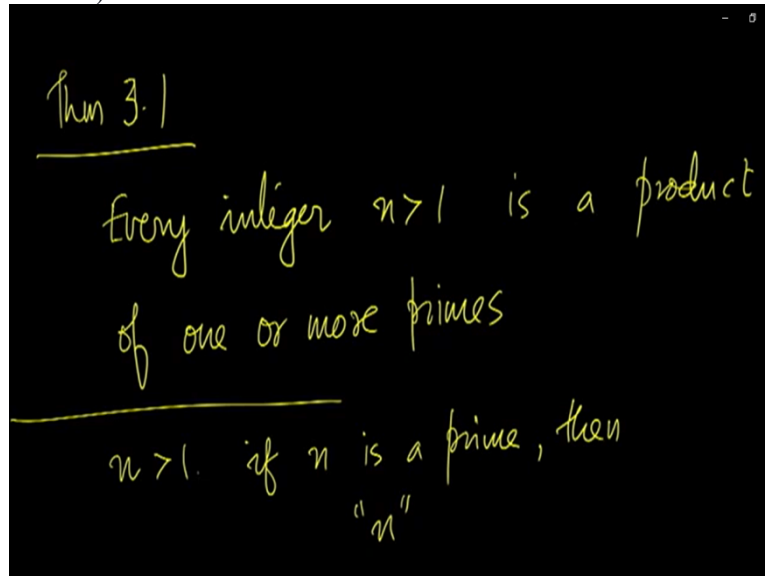 Thm 3.1
Every integer n>1 is a product
of one or more primes
n>1. if n is a prime, then
"n"